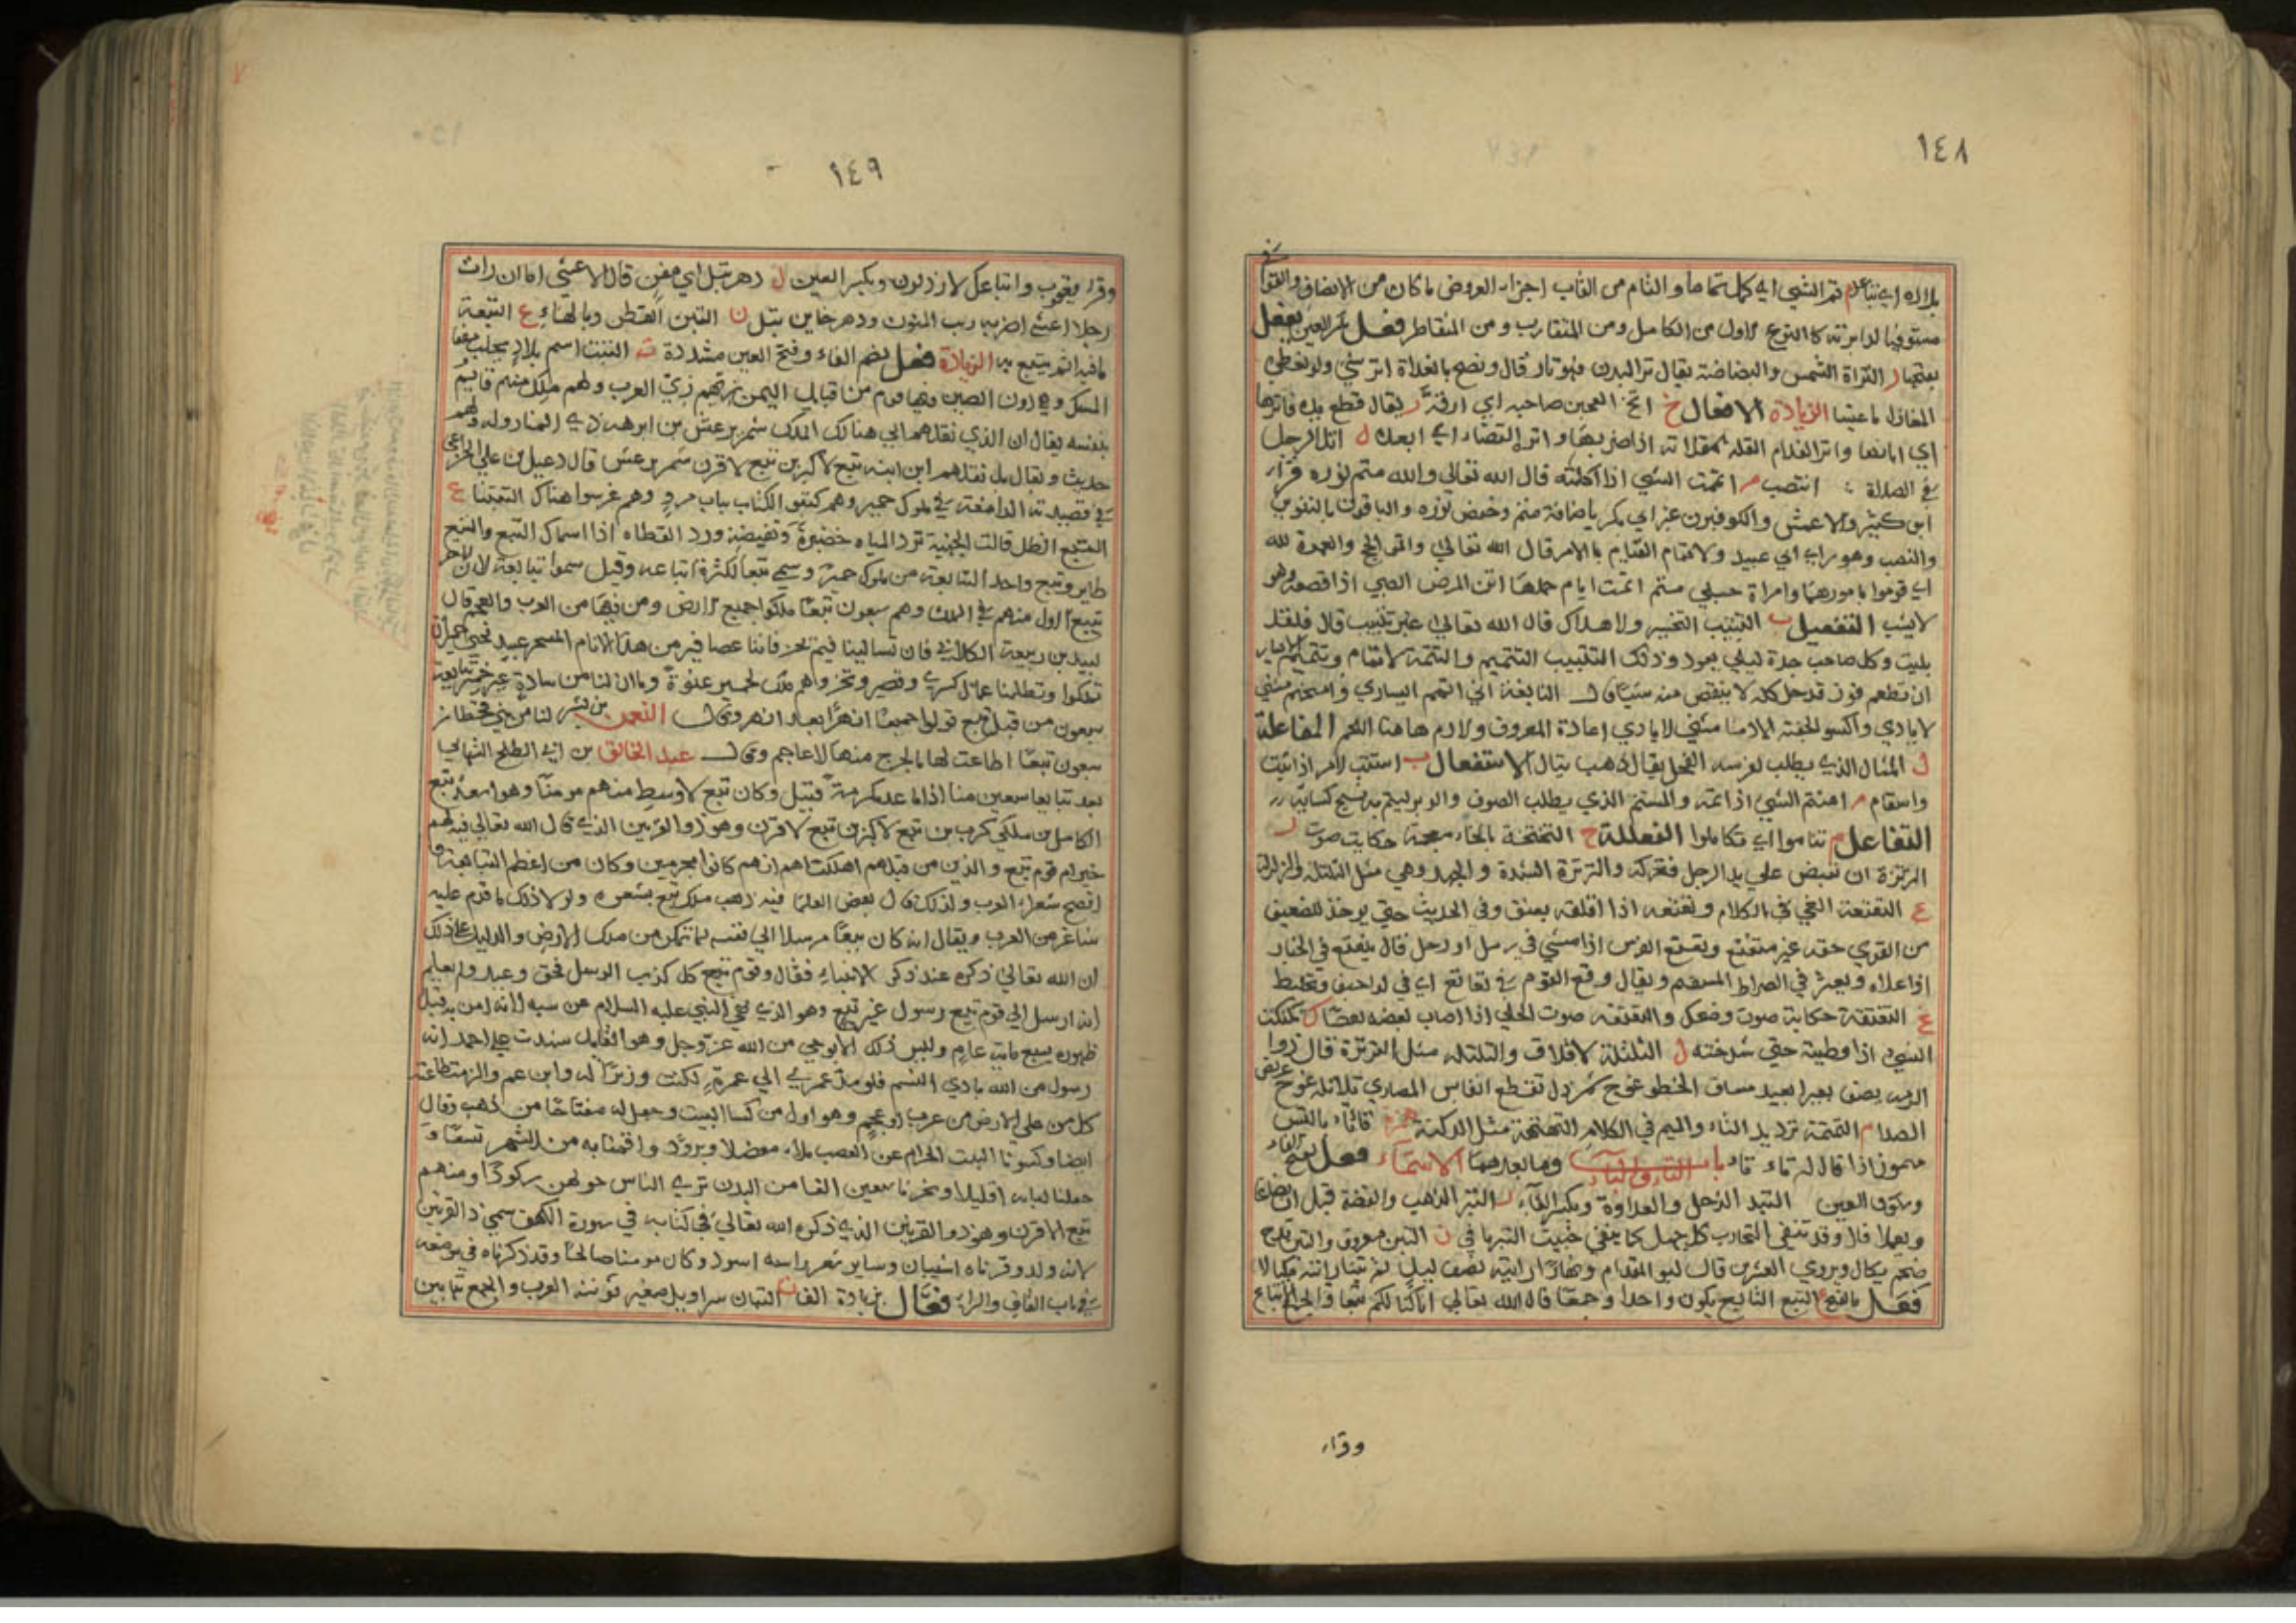 ١٤٨
تم الشي اي كمل تماما والتام من القاب اجزاء العروض ما كان من الانصاف
مستوفيا لدايرته كالنوع الاول من الكامل ومن المتقارب ومن فعل العين يفعل
التراة الشمس والبضاضة يقال تر البدن فهو تار قال ونصبح بالغداة اتر شي ولو نعطى
المغازل ما عيينا الزيادة الافعال خ اتخ العجين صاحبه اي ارقه ر يقال قطع يده فاترها
اي ابانها واتر الغلام القلة بمقلاته اذا ضربها واتر القضاء اي ابعده ل اتل الرجل
في الصلاة انتصب م اتممت الشي اذا اكملته قال الله تعالى والله متم نوره قرا
ابن كثير والاعمش والكوفيون غير ابي بكر باضافة متم وخفض نوره والباقون بالتنوين
والنصب وهو راي ابي عبيد والاتمام القيام بالامر قال الله تعالى واتموا الحج والعمرة لله
اي قوموا بامورهما وامراة حبلى متم اتمت ايام حملها اتن المرض الصبي اذا قصعه وهو
لا يشب التفعيل ب التتبيب التخسير والاهلاك قال الله تعالى غير تتبيب قال
بليت وكل صاحب جدة لبلى يعود وذلك التتبيب التتميم والتتمة الاتمام وتتميم الايسار
ان تطعم فوز قدحك كله لا ينقص منه شيا قال النابغة اني اتمم ايساري وامنحهم مثنى
الايادي واكسو الجفنة الادما مثنى الايادي اعادة المعروف والادم هاهنا اللحم المفاعلة
ل المتال الذي يطلب لغرسه الفحل يقال ذهب يتال الاستفعال ب استتب الامر اذا تهيا
واستقام م استتم الشي اذا تمه والمستتم الذي يطلب الصوف والوبر ليتم به نسج كسايه
التفاعل م تتاموا اي تكاملوا الفعللة خ التختخة بالخاء معجمة حكاية صوت ر
الترترة ان تقبض على يد الرجل فتحركه والترترة الشدة والجهد وهي مثل التلتلة والزلزلة
ع التعتعة العي في الكلام وتعتعه اذا اقلقه بعنف وفي الحديث حتى يوخذ للضعيف
من القوي حقه غير متعتع وتعتع الفرس اذا مشى في رمل او وحل قال يتعتع في الخبار
اذا علاه ويعثر في الصراط المستقيم ويقال وقع القوم في تعاتع اي في اراجيف وتخليط
غ التغتغة حكاية صوت وضحك والتغتغة صوت الحلي اذا اصاب بعضه بعضا ك تكتكت
الشي اذا وطيته حتى شدخته ل التلتلة الاقلاق والتلتلة مثل الترترة قال ذوا
الرمة يصف بعيرا بعيد مساف الخطو غوج شمردل تقطع انفاس المهاري تلاتله غوج عريض
الصدر م التمتمة ترديد التاء والميم في الكلام التهتهة مثل اللكنة همزة تاتاء بالتيس
مهموز اذا قال له تاء تاء باب التاء والباء وما بعدهما الاسماء فعل بفتح الفاء
وسكون العين التبل الذحل والعداوة وبكسر الفاء ر التبر الذهب والفضة قبل ان يصاغا
ويعملا قال وقد تنفي التجارب كل جهل كما ينفي خبيث التبر نافي ن التبن معروف والتبن قدح
ضخم يكال ويروي العشرين قال
فعل بالفتح ع التبع التابع يكون واحدا وجمعا قال الله تعالى انا كنا لكم تبعا والجميع الاتباع
وقراء
١٤٩
وقرا يعقوب واتباعك الارذلون وبكسر العين ل دهر تبل اي مفن قال الاعشى اا ان رات
رجلا اعشى اضر به ريب المنون ودهر خاين تبل ن التبن الفطن وبالهاء ع التبعة
ما فيه اثم يتبع به الزيادة فعل بضم الفاء وفتح العين مشددة ت التبت اسم بلاد يجلب منها
المسك وهي دون الصين وبها قوم من قبايل اليمن زيهم زي العرب ولهم ملك منهم قايم
بنفسه يقال ان الذي نقلهم الى هنالك الملك شمر يرعش بن ابرهه ذي المنار وله ولهم
حديث ويقال بل نقلهم ابن ابنه تبع الاكبر بن تبع الاقرن شمر يرعش قال دعبل بن علي الخزاعي
في قصيدته الدامغة في ملوك حمير وهم كتبوا الكتاب بباب مرو وهم غرسوا هناك التبتينا ع
التبع الظل قالت الجهنية ترد المياه حضيرة ونفيضة ورد القطاة اذا اسمال التبع والتبع
طاير وتبع واحد التبابعة من ملوك حمير وسمي تبعا لكثرة اتباعه وقيل سموا تبابعة لان الاخر
تبع الاول منهم في الملك وهم سبعون تبعا ملكوا جميع الارض ومن فيها من العرب والعجم قال
لبيد بن ربيعة الكلابي فان تسالينا فيم نحن فاننا عصافير من هذا الانام المسحر عبيد لحيي حمير ان
تملكوا وتظلمنا عمال كسرى وقيصر ونحن وهم ملك لحمير عنوة وما ان لنا من سادة غير حمير تبابعة
سبعون من قبل تبع تولوا جميعا ازهرا بعد ازهر وقال النعمن بن بشير لنا من بني قحطان
سبعون تبعا اطاعت لها بالخرج منها الاعاجم وقال عبد الخالق بن ابي الطلح الشهابي
بعد تبابعا سبعين منا اذا ما عد مكرمة قبيل وكان تبع الاوسط منهم مومنا وهو اسعد تبع
الكامل بن ملكي كرب بن تبع الاكبر بن تبع الاقرن وهو ذو القرنين الذي قال الله تعالى فيه اهم
خير ام قوم تبع والذين من قبلهم اهلكناهم انهم كانوا مجرمين وكان من اعظم التبابعة و
افصح شعراء العرب ولذلك قال بعض العلما فيه ذهب ملك تبع بشعره ولولا ذلك ما قدم عليه
شاعر من العرب ويقال انه كان نبيا مرسلا الى نفسه لما تمكن من ملك الارض والدليل على ذلك
ان الله تعالى ذكره عند ذكر الانبياء فقال وقوم تبع كل كذب الرسل فحق وعيد ولم يعلم
انه ارسل الى قوم تبع رسول غير تبع وهو الذي نهى النبي عليه السلام عن سبه لانه امن به قبل
ظهوره بسبع ماية عام وليس ذلك الا بوحي من الله عز وجل وهو القايل شهدت على احمد انه
رسول من الله بادي النسم فلو مد عمري الى عمره لكنت وزيرا له وابن عم والزمت طاعته
كل من على الارض من عرب او عجم وهو اول من كسا البيت وجعل له مفتاحا من ذهب وقال
ايضا وكسونا البيت الحرام من العصب ملاء معضلا وبرودا واقمنا به من الشهر تسعا و
جعلنا لبابه اقليدا ونحرنا سبعين الفا من البدن ترى الناس حولهن ركودا ومنهم
تبع الاقرن وهو ذو القرنين الذي ذكره الله تعالى في كتابه في سورة الكهف سمي ذا القرنين
لانه ولد وقرناه اشيبان وساير شعر راسه اسود وكان مومنا صالحا وقد ذكرناه في موضعه
في باب القاف والراء فعال بزيادة الف ن التبان سراويل صغير تونثه العرب والجمع تبابين